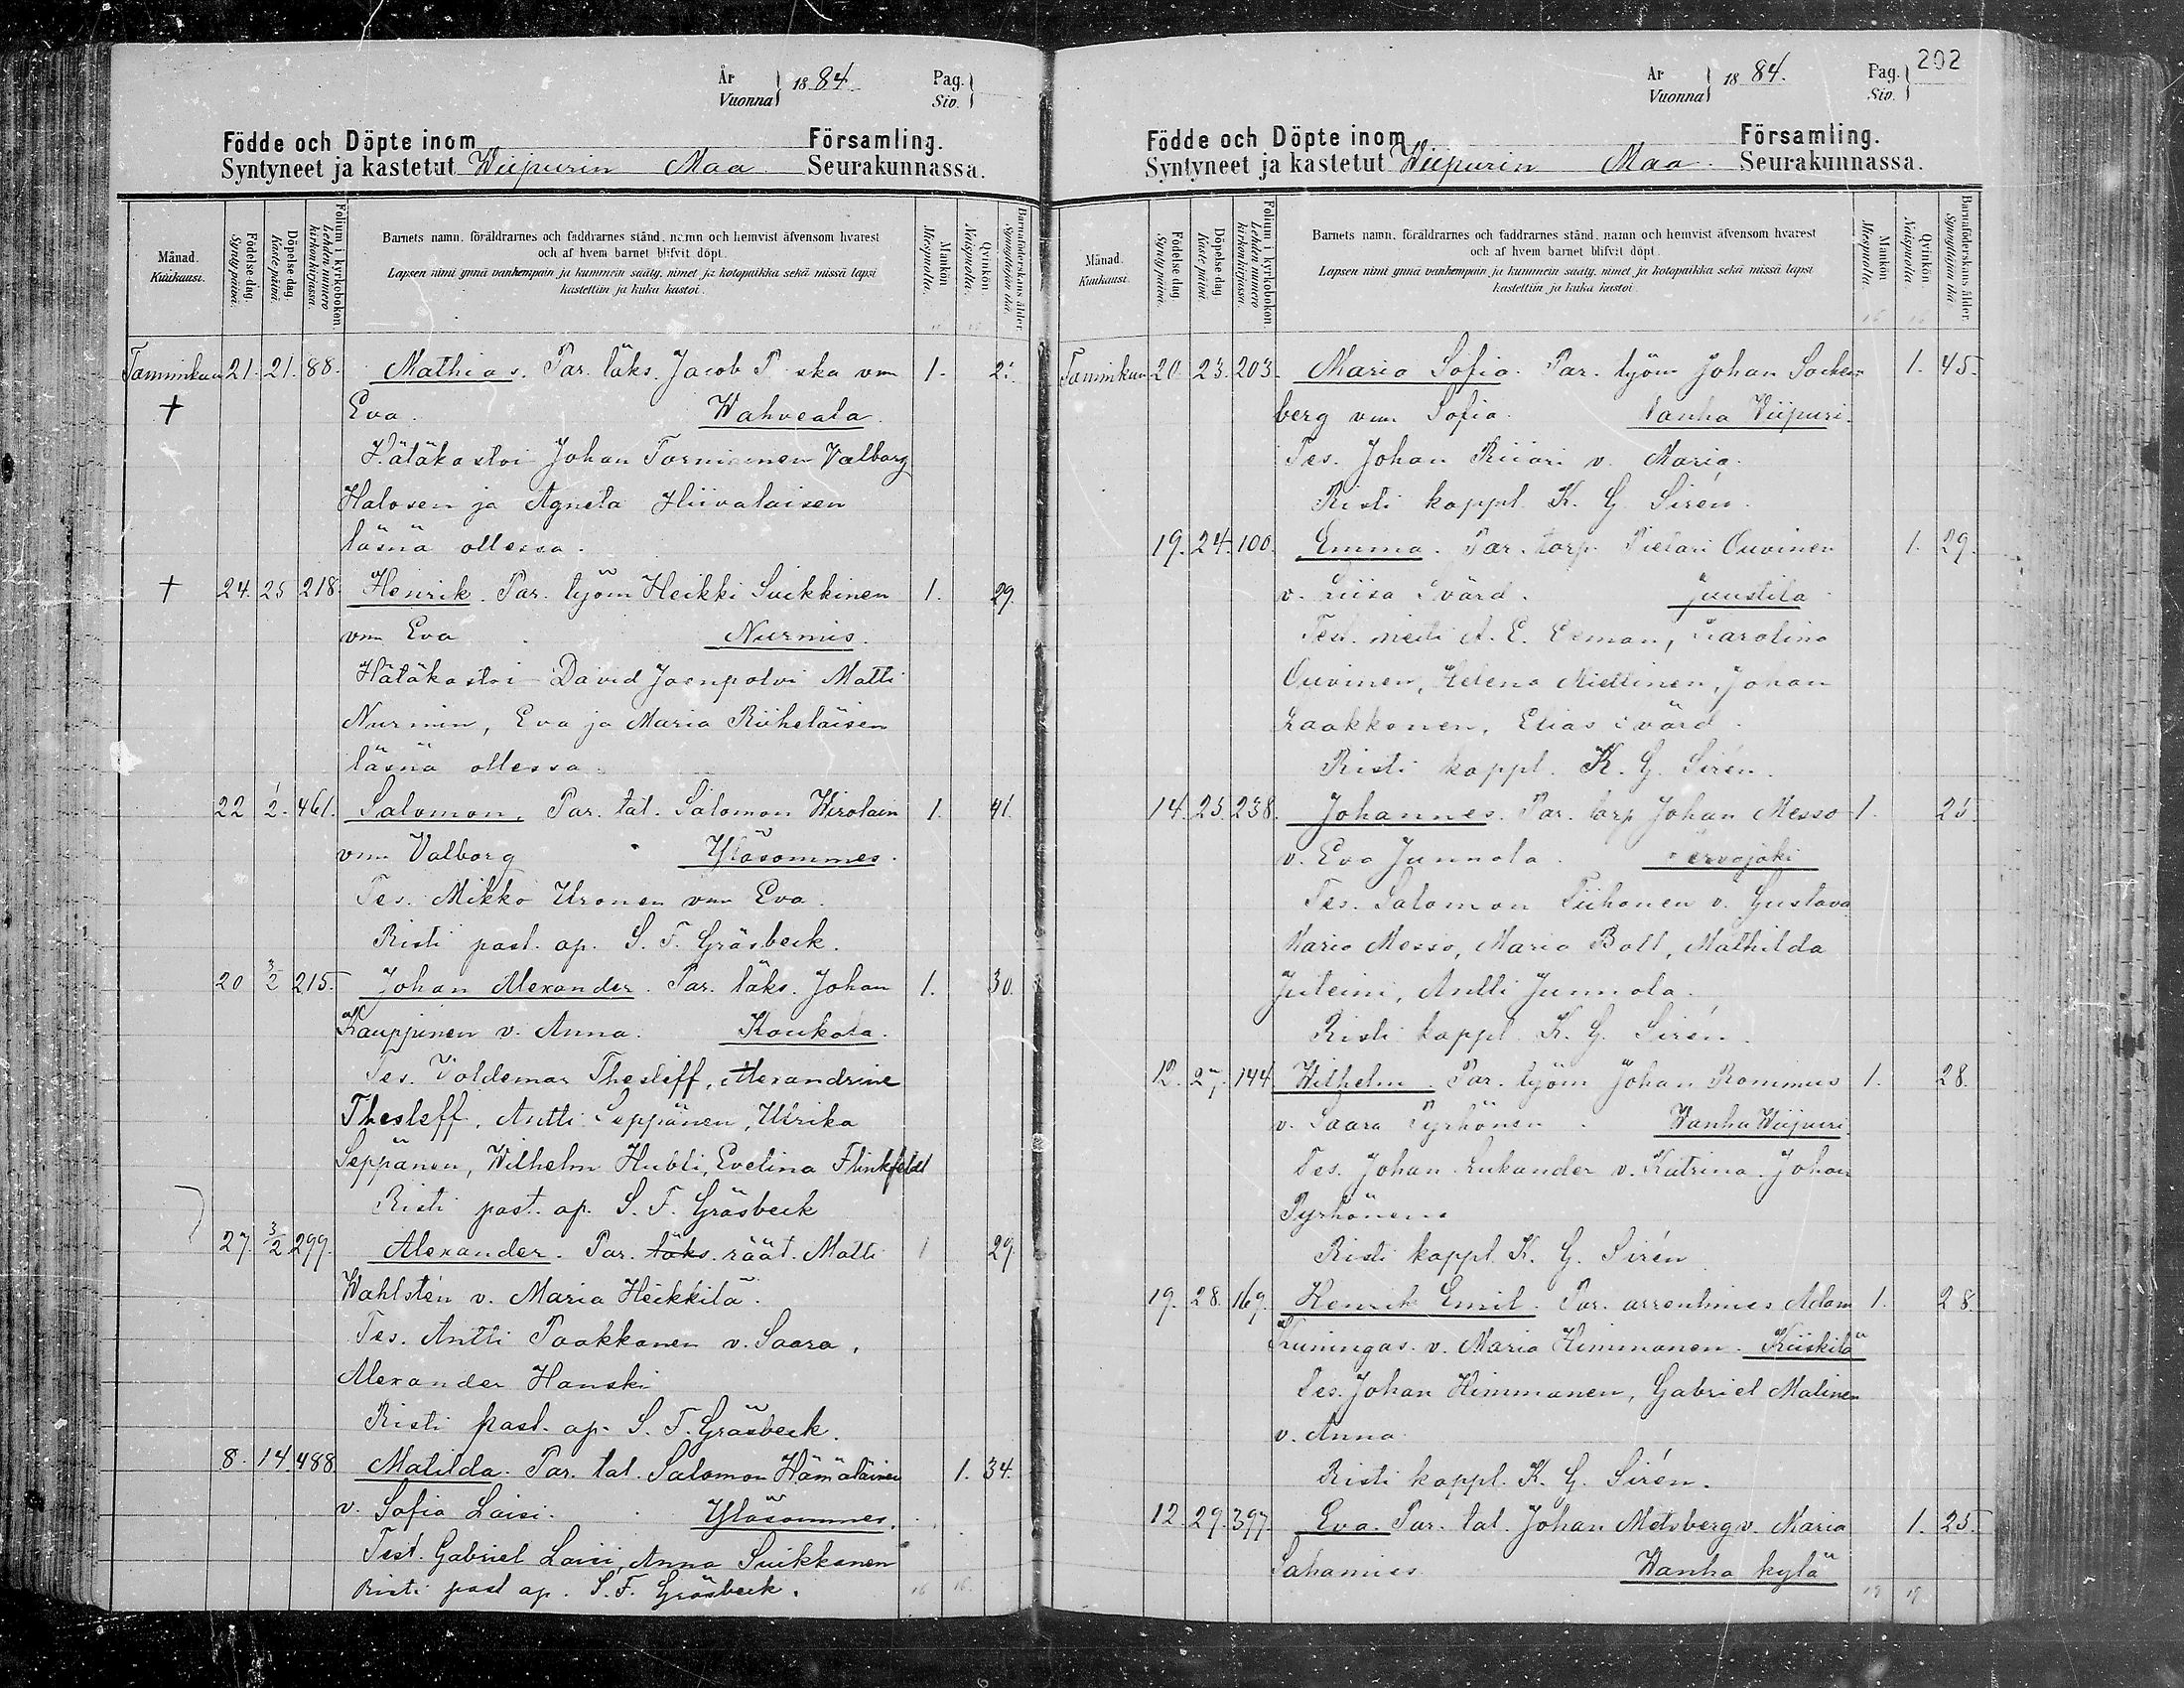 År
Vuonna 1884.
Pag.
Siv.
Födde och Döpte inom Församling.
Syntyneet ja kastetut Wiipurin Maa Seurakunnassa.
Månad. Kuukausi.
Födelse-dag. Syntypäivä.
Döpelse-dag. Kastepäivä.
Folium i kyrkoboken. Lehden numero kirkonkirjassa.
Barnets namn, föräldrarnes och faddrarnes stånd, namn och hemvist äfvensom hvarest
och af hvem barnet blifvit döpt.
Lapsen nimi ynnä vanhempain ja kummein sääty, nimet ja kotopaikka sekä missä lapsi
kastettiin ja kuka kastoi.
Mankön. Miespuolia.
Qvinkön. Naispuolia.
Barnaföderskans ålder. Synnyttäjän ikä.
Tammikuu 21. 21. 88. Mathias. Par. läks. Jacob P ska vm 1.
† Eva. Wahveala.
Hätäkastoi Johan Torniainen Valborg
Halosen ja Agneta Hiivalaisen
läsnä ollessa.
† 24. 25 218. Henrik. Par. työm Heikki Suikkinen 1. 29.
vm Eva Nurmis.
Hätäkastoi David Joenpolvi Matti
Nurmin, Eva ja Maria Riiheläisen
läsnä ollessa
22 1/2. 461. Salomon. Par. tal. Salomon Wirolain 1. 41.
vm Valborg Yläsommes.
Tes. Mikko Uronen vm Eva.
Risti past. ap. S. F. Gräsbeck.
20 3/2 215. Johan Alexander. Par. läks. Johan 1. 30.
Kauppinen v. Anna. Koukala.
Tes. Voldemar Thesleff, Alexandrine
Thesleff, Antti Seppänen, Ulrika
Seppänen, Wilhelm Hubli, Evelina Flinkfeldt
Risti past. ap. S. F. Gräsbeck
27. 3/2 299. Alexander. Par. läks. räät. Matti 1 29
Wahlstén v. Maria Heikkilä.
Tes. Antti Paakkanen v. Saara,
Alexander Hanski
Risti past. ap. S. F. Gräsbeck.
8. 14. 488 Matilda. Par. tal. Salomon Hämäläinen 1. 34.
v. Sofia Laisi. Yläsommes.
Test. Gabriel Laisi, Anna Suikkanen
Risti past ap. S. F. Gräsbeck.
16 16
År
Vuonna 1884.
Pag.
Siv. 202
Födde och Döpte inom Församling.
Syntyneet ja kastetut Wiipurin Maa Seurakunnassa.
Månad. Kuukausi.
Födelse-dag. Syntypäivä.
Döpelse-dag. Kastepäivä.
Folium i kyrkoboken. Lehden numero kirkonkirjassa.
Barnets namn, föräldrarnes och faddrarnes stånd, namn och hemvist äfvensom hvarest
och af hvem barnet blifvit döpt.
Lapsen nimi ynnä vanhempain ja kummein sääty, nimet ja kotopaikka sekä missä lapsi
kastettiin ja kuka kastoi.
Mankön. Miespuolia.
Qvinkön. Naispuolia.
Barnaföderskans ålder. Synnyttäjän ikä.
Tammikuu 20. 23. 203. Maria Sofia. Par. työm Johan Sachen 1. 45.
berg vm Sofia. Vanha Viipuri.
Tes. Johan Riiari v. Maria.
Risti kappl. K. G. Sirén.
19. 24. 100. Emma. Par. torp. Pietari Ouvinen 1. 29.
v. Liisa Svärd. Juustila
Test. neiti A. E. Ekman, Karolina
Ouvinen, Helena Miettinen, Johan
Laakkonen, Elias Svärd.
Risti kappl. K. G. Sirén.
14. 25. 238. Johannes. Par. torp Johan Messo 1. 25.
v. Eva Junnola. Tervajoki
Tes. Salomon Tiihonen v. Gustava
Maria Messo, Maria Boll, Mathilda
Juteini, Antti Junnola.
Risti kappl. K. G. Sirén.
12. 27. 144 Wilhelm. Par. työm Johan Rommus 1. 28.
v. Saara Pyrhönen. Wanha Wiipuri.
Tes. Johan Lukander v. Katrina. Johan
Pyrhönen
Risti kappl. K. G. Sirén
19. 28. 169. Henrik Emil. Par. arrentimies Adam 1. 28.
Kuningas v. Maria Himmanen. Kiiskilä
Tes. Johan Himmanen, Gabriel Malinen
v. Anna.
Risti kappl. K. G. Sirén.
12 29. 397. Eva. Par. tal. Johan Metsberg v. Maria 1. 25.
Sahamies Wanha kylä
19 19